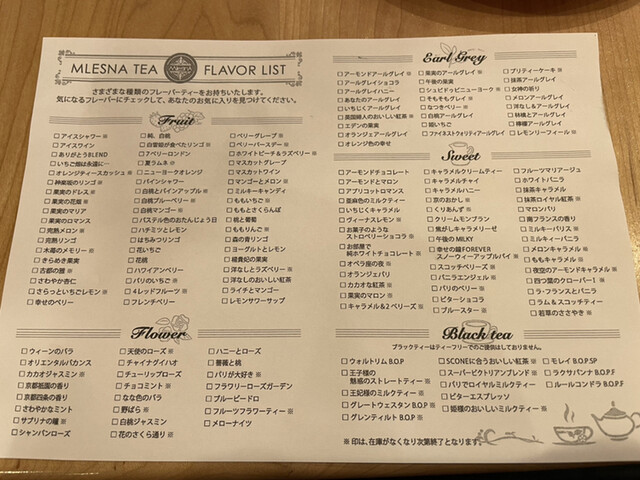 MLESNA TEA FLAVOR LIST
さまざまな種類のフレーバーティーをお持ちいたします。
気になるフレーバーにチェックして、あなたのお気に入りを見つけてください。
Fruit
□ アイスシャワー ※
□ アイスワイン
□ ありがとうBLEND
□ いちご畑は永遠に…
□ オレンジティースカッシュ ※
□ 神楽坂のリンゴ ※
□ 果実のドレス ※
□ 果実の花畑 ※
□ 果実のマリア
□ 果実のロマンス
□ 完熟メロン ※
□ 完熟リンゴ
□ 木苺のメモリー ※
□ きらめき果実
□ 古都の雅 ※
□ さわやか杏仁
□ さらっといちごレモン ※
□ 幸せのベリー
□ 純、白桃
□ 白雪姫が食べたリンゴ ※
□ 7ベリーロンドン
□ 夏ラムネ ※
□ ニューヨークオレンジ
□ パインシャワー
□ 白桃とパインアップル ※
□ 白桃ブルーベリー ※
□ 白桃マンゴー ※
□ パステル色のおたんじょう日
□ ハチミツとレモン
□ はちみつリンゴ
□ 花いちご
□ 花桃
□ ハワイアンベリー
□ パリのいちご ※
□ 4レッドフルーツ ※
□ フレンチベリー
□ ベリーグレープ ※
□ ベリーバースデー ※
□ ホワイトピーチ&ラズベリー ※
□ マスカットグレープ
□ マスカットワイン
□ マンゴーとメロン ※
□ ミルキーキャンディ
□ ももいちご ※
□ ももとさくらんぼ
□ 桃と葡萄
□ ももりんご ※
□ 森の青リンゴ
□ ヨーグルトとレモン
□ 楊貴妃の果実
□ 洋なしとラズベリー ※
□ 洋なしのおいしい紅茶
□ ライチとマンゴー
□ レモンサワーサップ
Flower
□ ウィーンのバラ
□ オリエンタルバタンス
□ カカオジャスミン ※
□ 京都祇園の香り
□ 京都四条の香り
□ さわやかなミント
□ サブリナの瞳 ※
□ シャンパンローズ
□ 天使のローズ ※
□ チャイナゲイハオ
□ チューリップローズ
□ チョコミント ※
□ なな色のバラ
□ 野ばら ※
□ 白桃ジャスミン
□ 花のさくら通り ※
□ ハニーとローズ
□ 薔薇と桃
□ パリが大好き ※
□ フラワリーローズガーデン
□ ブルーピードロ
□ フルーツフラワーティー ※
□ メローナイツ
Earl Grey
□ アーモンドアールグレイ ※
□ アールグレイショコラ
□ アールグレイハニー
□ あなたのアールグレイ
□ いちじくアールグレイ
□ 英国婦人のおいしい紅茶 ※
□ エデンの果実
□ オランジェアールグレイ
□ オレンジ色の幸せ
□ 果実のアールグレイ ※
□ 午後の果実
□ シュビドゥッビニューヨーク ※
□ そもそもグレイ ※
□ なつきベリー ※
□ 白桃アールグレイ
□ 姫いちご
□ ファイネストクォリティアールグレイ
□ プリティーケーキ ※
□ 抹茶アールグレイ
□ 女神の祈り
□ メロンアールグレイ
□ 洋なし&アールグレイ
□ 林檎とアールグレイ
□ 檸檬とアールグレイ
□ レモンリーフィール ※
Sweet
□ アーモンドチョコレート
□ アーモンドとマロン
□ アプリコットロマンス
□ 亜麻色のミルクティ
□ いちじくキャラメル
□ ヴィーナスレモン ※
□ お菓子のような
ストロベリーショコラ
□ お部屋で
純ホワイトチョコレート ※
□ オペラ座の夜 ※
□ オランジェパリ
□ カカオな紅茶 ※
□ 果実のマロン ※
□ キャラメル&2ベリーズ ※
□ キャラメルクリームティー
□ キャラメルチャイ
□ キャラメルハニー
□ 京のおかし ※
□ くりあんず ※
□ クリームモンブラン
□ 焦がしキャラメリーゼ
□ 午後の MILKY
□ 幸せの鐘FOREVER
スノーウィーアップルパイ ※
□ スコッチベリーズ ※
□ バニラエンジェル ※
□ パリのベリー ※
□ ビターショコラ
□ ブルースター ※
□ フルーツマリアージュ
□ ホワイトバニラ
□ 抹茶キャラメル
□ 抹茶ロイヤル紅茶 ※
□ マロンパリ
□ 南フランスの香り
□ ミルキーパリス ※
□ ミルキィーバニラ
□ メロンキャラメル ※
□ ももキャラメル ※
□ 夜空のアーモンドキャラメル
□ 四つ葉のクローバーI ※
□ ラ・フランスとバニラ
□ ラム&スコッチティー
□ 若草のささやき ※
Black tea
ブラックティーはティーフリーでのご提供はしておりません。
□ ウォルトリム B.O.P
□ 王子様の
魅惑のストレートティー ※
□ 王妃様のミルクティー ※
□ グレートウェスタン B.O.P ※
□ グレンティルト B.O.P ※
□ SCONEに合うおいしい紅茶 ※
□ スーパービクトリアンブレンド ※
□ パリでロイヤルミルクティー
□ ビターエスプレッソ
□ 姫様のおいしいミルクティー ※
□ モレイ B.O.P.SP
□ ラクサパンナ B.O.P.F
□ ルールコンドラ B.O.P.F
※ 印は、在庫がなくなり次第終了となります。